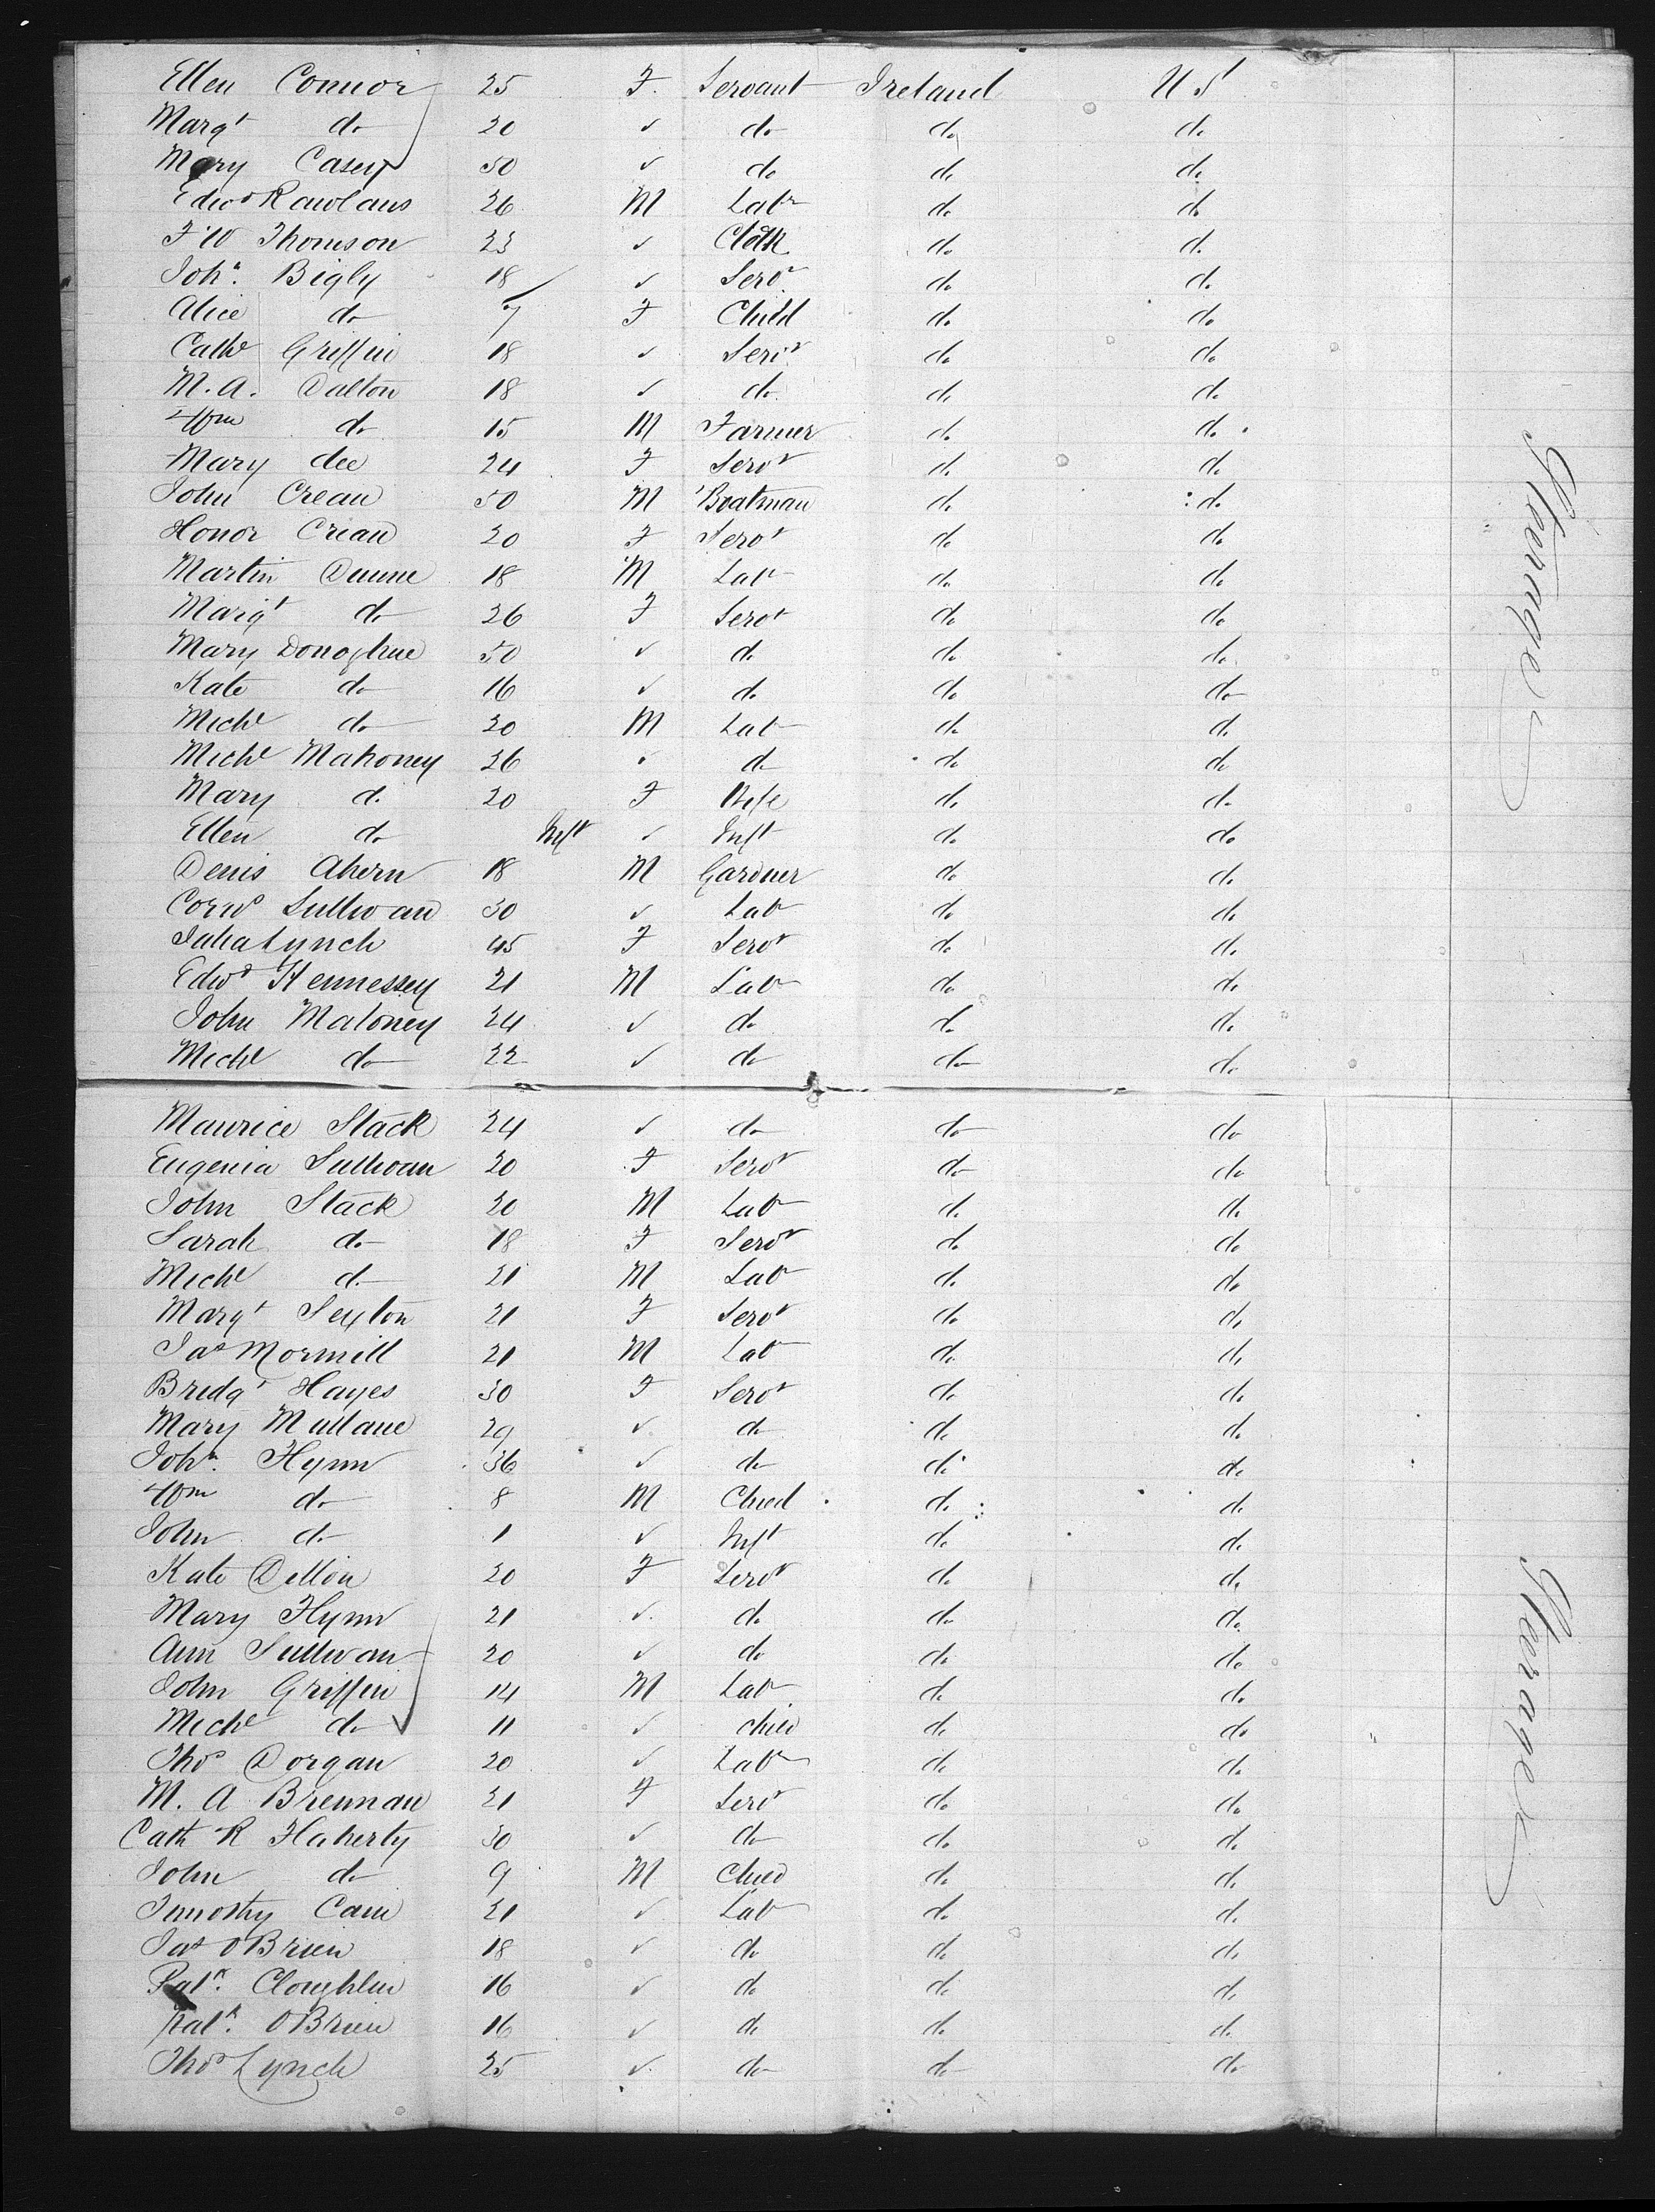 Ellen Connor 25 F. Servant Ireland U S
Margt do 20 ✓ do do do
Mary Casey 50 ✓ do do do
Edwd Rawlans 26 M Labr do do
F W Thomson 23 ✓ Clerk do do
Joha. Bigly 18 ✓ Servt do do
Alice do 7 F Child do do
Cathe Griffin 18 ✓ Servt do do
M. A. Dalton 18 ✓ do do do
Wm do 15 M Farmer do do
Mary dee 24 F Servt do do
John Crean 50 M Boatman do do
Honor Crean 20 F Servt do do
Martin Dunne 18 M Labr do do
Margt do 26 F Servt do do
Mary Donoghue 50 ✓ do do do
Kate do 16 ✓ do do do
Michl do 20 M Labr do do
Michl Mahoney 26 ✓ do do do
Mary do 20 F Wife do do
Ellen do Inft ✓ Inft do do
Denis Ahern 18 M Gardner do do
Corns Sullivan 30 ✓ Labr do do
Julia Lynch 45 F Servt do do
Edwd Hennessey 21 M Labr do do
John Maloney 24 ✓ do do do
Michl do 22 ✓ do do do
Steerage
Maurice Stack 24 ✓ do do do
Eugenia Sullivan 20 F Servt do do
John Stack 20 M Labr do do
Sarah do 18 F Servt do do
Michl do 21 M Labr do do
Margt Sexton 21 F Servt do do
Jas 21 M Labr do do
Bridgt Hayes 30 F Servt do do
Mary Mullane 29 ✓ do do do
Joha. Flynn 36 ✓ do do do
Wm do 8 M Child do do
John do 1 ✓ Inft do do
Kate Dillon 20 F Servt do do
Mary Flynn 21 ✓ do do do
Ann Sullivan 20 ✓ do do do
John Griffin 14 M Labr do do
Michl do 11 ✓ child do do
Thos Dorgan 20 ✓ Labr do do
M. A Brennan 21 F Servt do do
Cath R Flaherty 30 ✓ do do do
John do 9 M Child do do
Timothy Cain 21 ✓ Labr do do
Jas OBrien 18 ✓ do do do
Patk. Cloughlin 16 ✓ do do do
Patk. OBrien 16 ✓ do do do
Thos Lynch 25 ✓ do do do
Steerage